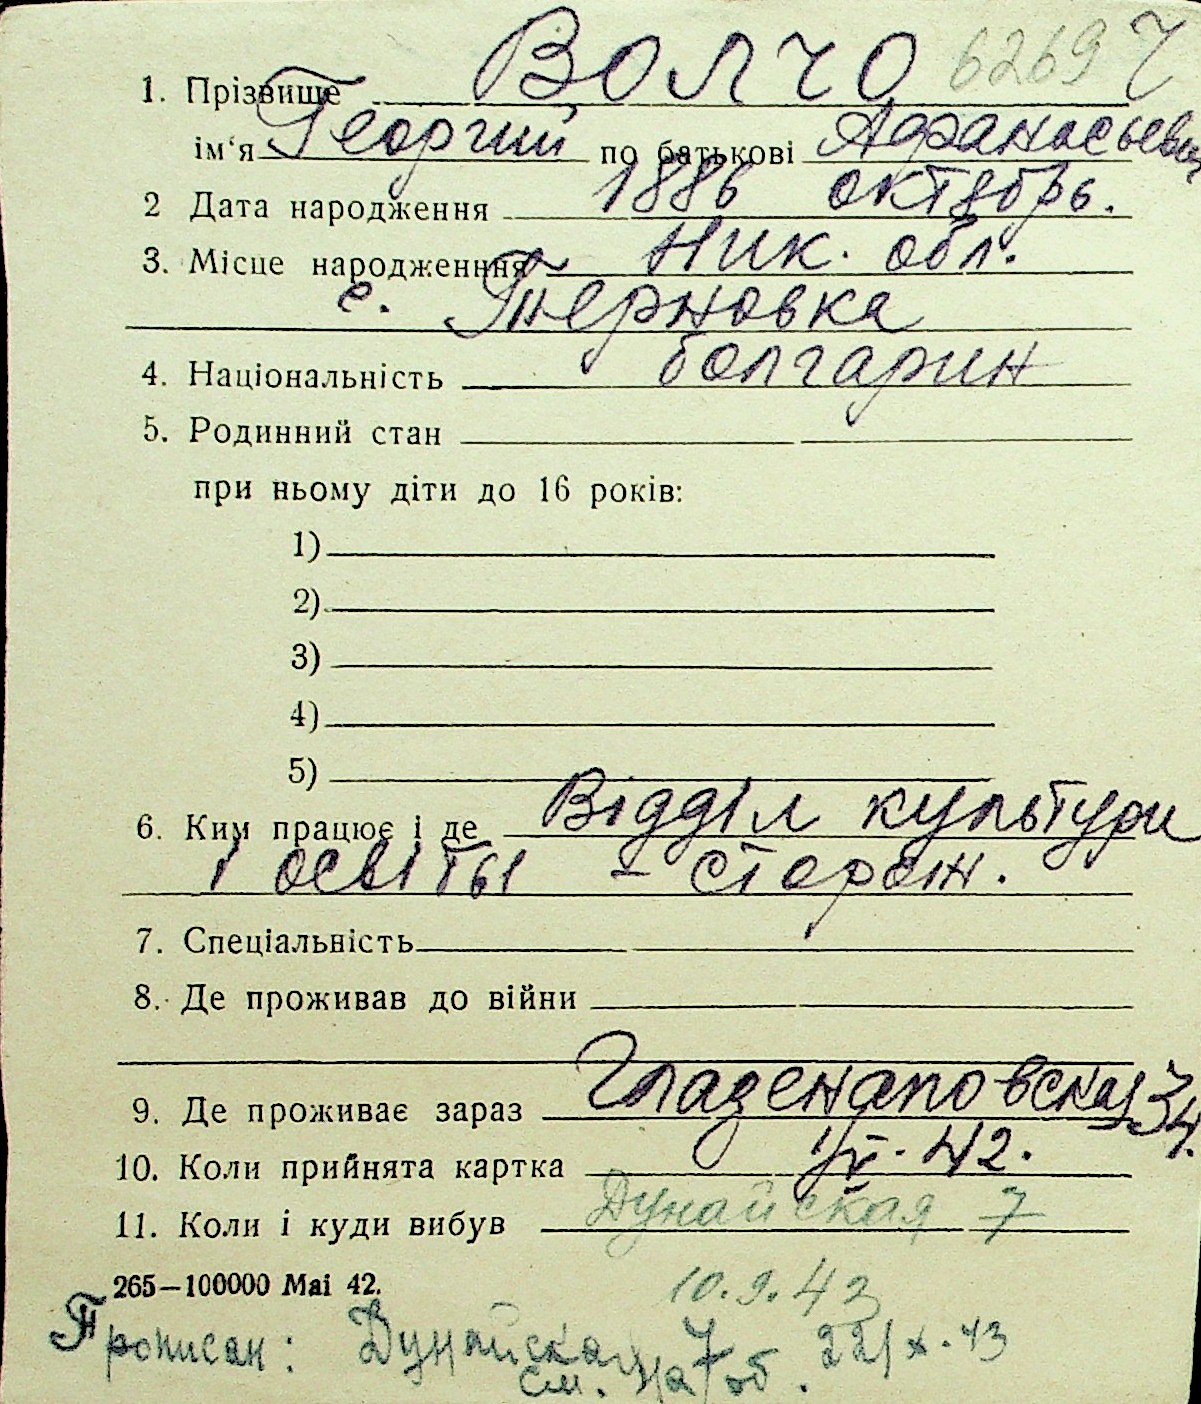 1. Прізвище Волчо 6269 7
ім‘я Георгий по батькові Афанасьевич
2 Дата народження 1886 октябрь.
3. Місце народженння Ник. обл.
с. Терновка
4. Національність болгарин
5. Родинний стан
при ньому діти до 16 років:
1)
2)
3)
4)
5)
6. Ким працює і де Відділ культури
і освіты - сторож.
7. Спеціальність
8. Де проживав до війни
9. Де проживає зараз Глазенаповская 34.
10. Коли прийнята картка 42.
11. Коли і куди вибув Дунайская 7
265—100000 Mai 42.
10.9.43
Прописан: Дунайская 7 22/X-43
см. на об.